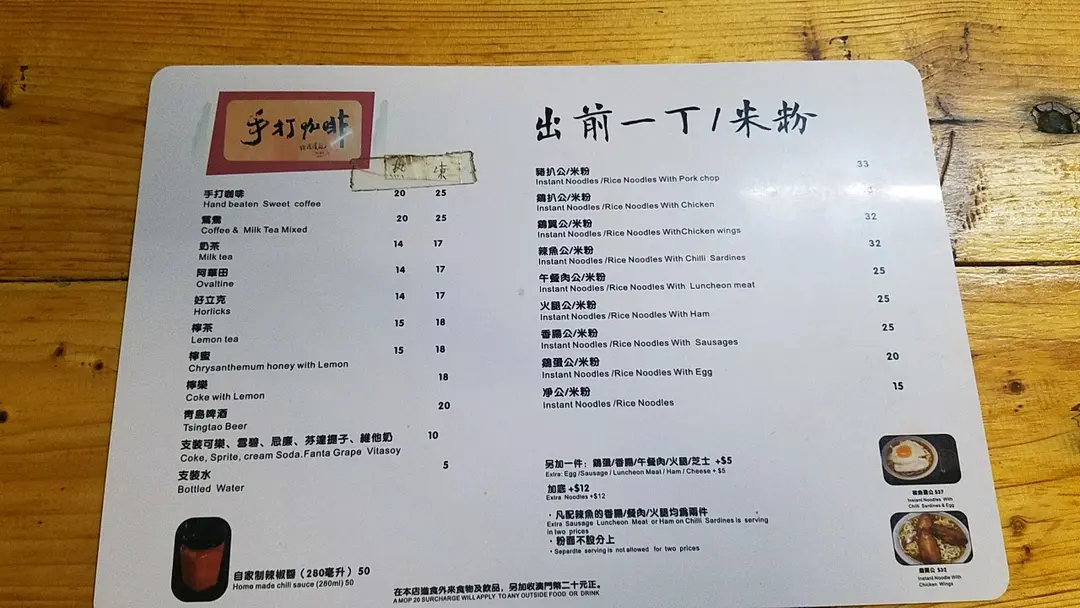 手打咖啡
熱 凍
手打咖啡 20 25
Hand beaten Sweet coffee
鴛鴦 20 25
Coffee & Milk Tea Mixed
奶茶 14 17
Milk tea
阿華田 14 17
Ovaltine
好立克 14 17
Horlicks
檸茶 15 18
Lemon tea
檸蜜 15 18
Chrysanthemum honey with Lemon
檸樂 18
Coke with Lemon
青島啤酒 20
Tsingtao Beer
支裝可樂、雲碧、忌廉、芬達提子、維他奶 10
Coke, Sprite, cream Soda.Fanta Grape Vitasoy
支裝水 5
Bottled Water
自家制辣椒醬（280毫升）50
Home made chili sauce (280ml) 50
出前一丁/米粉
豬扒公/米粉 33
Instant Noodles /Rice Noodles With Pork chop
鷄扒公/米粉
Instant Noodles /Rice Noodles With Chicken
鷄翼公/米粉 32
Instant Noodles /Rice Noodles WithChicken wings
辣魚公/米粉 32
Instant Noodles /Rice Noodles With Chilli Sardines
午餐肉公/米粉 25
Instant Noodles /Rice Noodles With Luncheon meat
火腿公/米粉 25
Instant Noodles /Rice Noodles With Ham
香腸公/米粉 25
Instant Noodles /Rice Noodles With Sausages
鷄蛋公/米粉 20
Instant Noodles /Rice Noodles With Egg
凈公/米粉 15
Instant Noodles /Rice Noodles
另加一件：鷄蛋/香腸/午餐肉/火腿/芝士 +$5
Extra: Egg /Sausage / Luncheon Meat / Ham / Cheese + $5
加底 +$12
Extra Noodles +$12
・凡配辣魚的香腸/餐肉/火腿均爲兩件
Extra Sausage Luncheon Meat or Ham on Chilli Sardines is serving
in two prices
・粉面不設分上
・Separdte serving is not allowed for two prices
辣魚蛋公 $37
Instant Noodles With
Chilli Sardines & Egg
鷄翼公 $32
Instant Noodle With
Chicken Wings
在本店進食外來食物及飲品，另加收澳門幣二十元正。
A MOP 20 SURCHARGE WILL APPLY TO ANY OUTSIDE FOOD OR DRINK